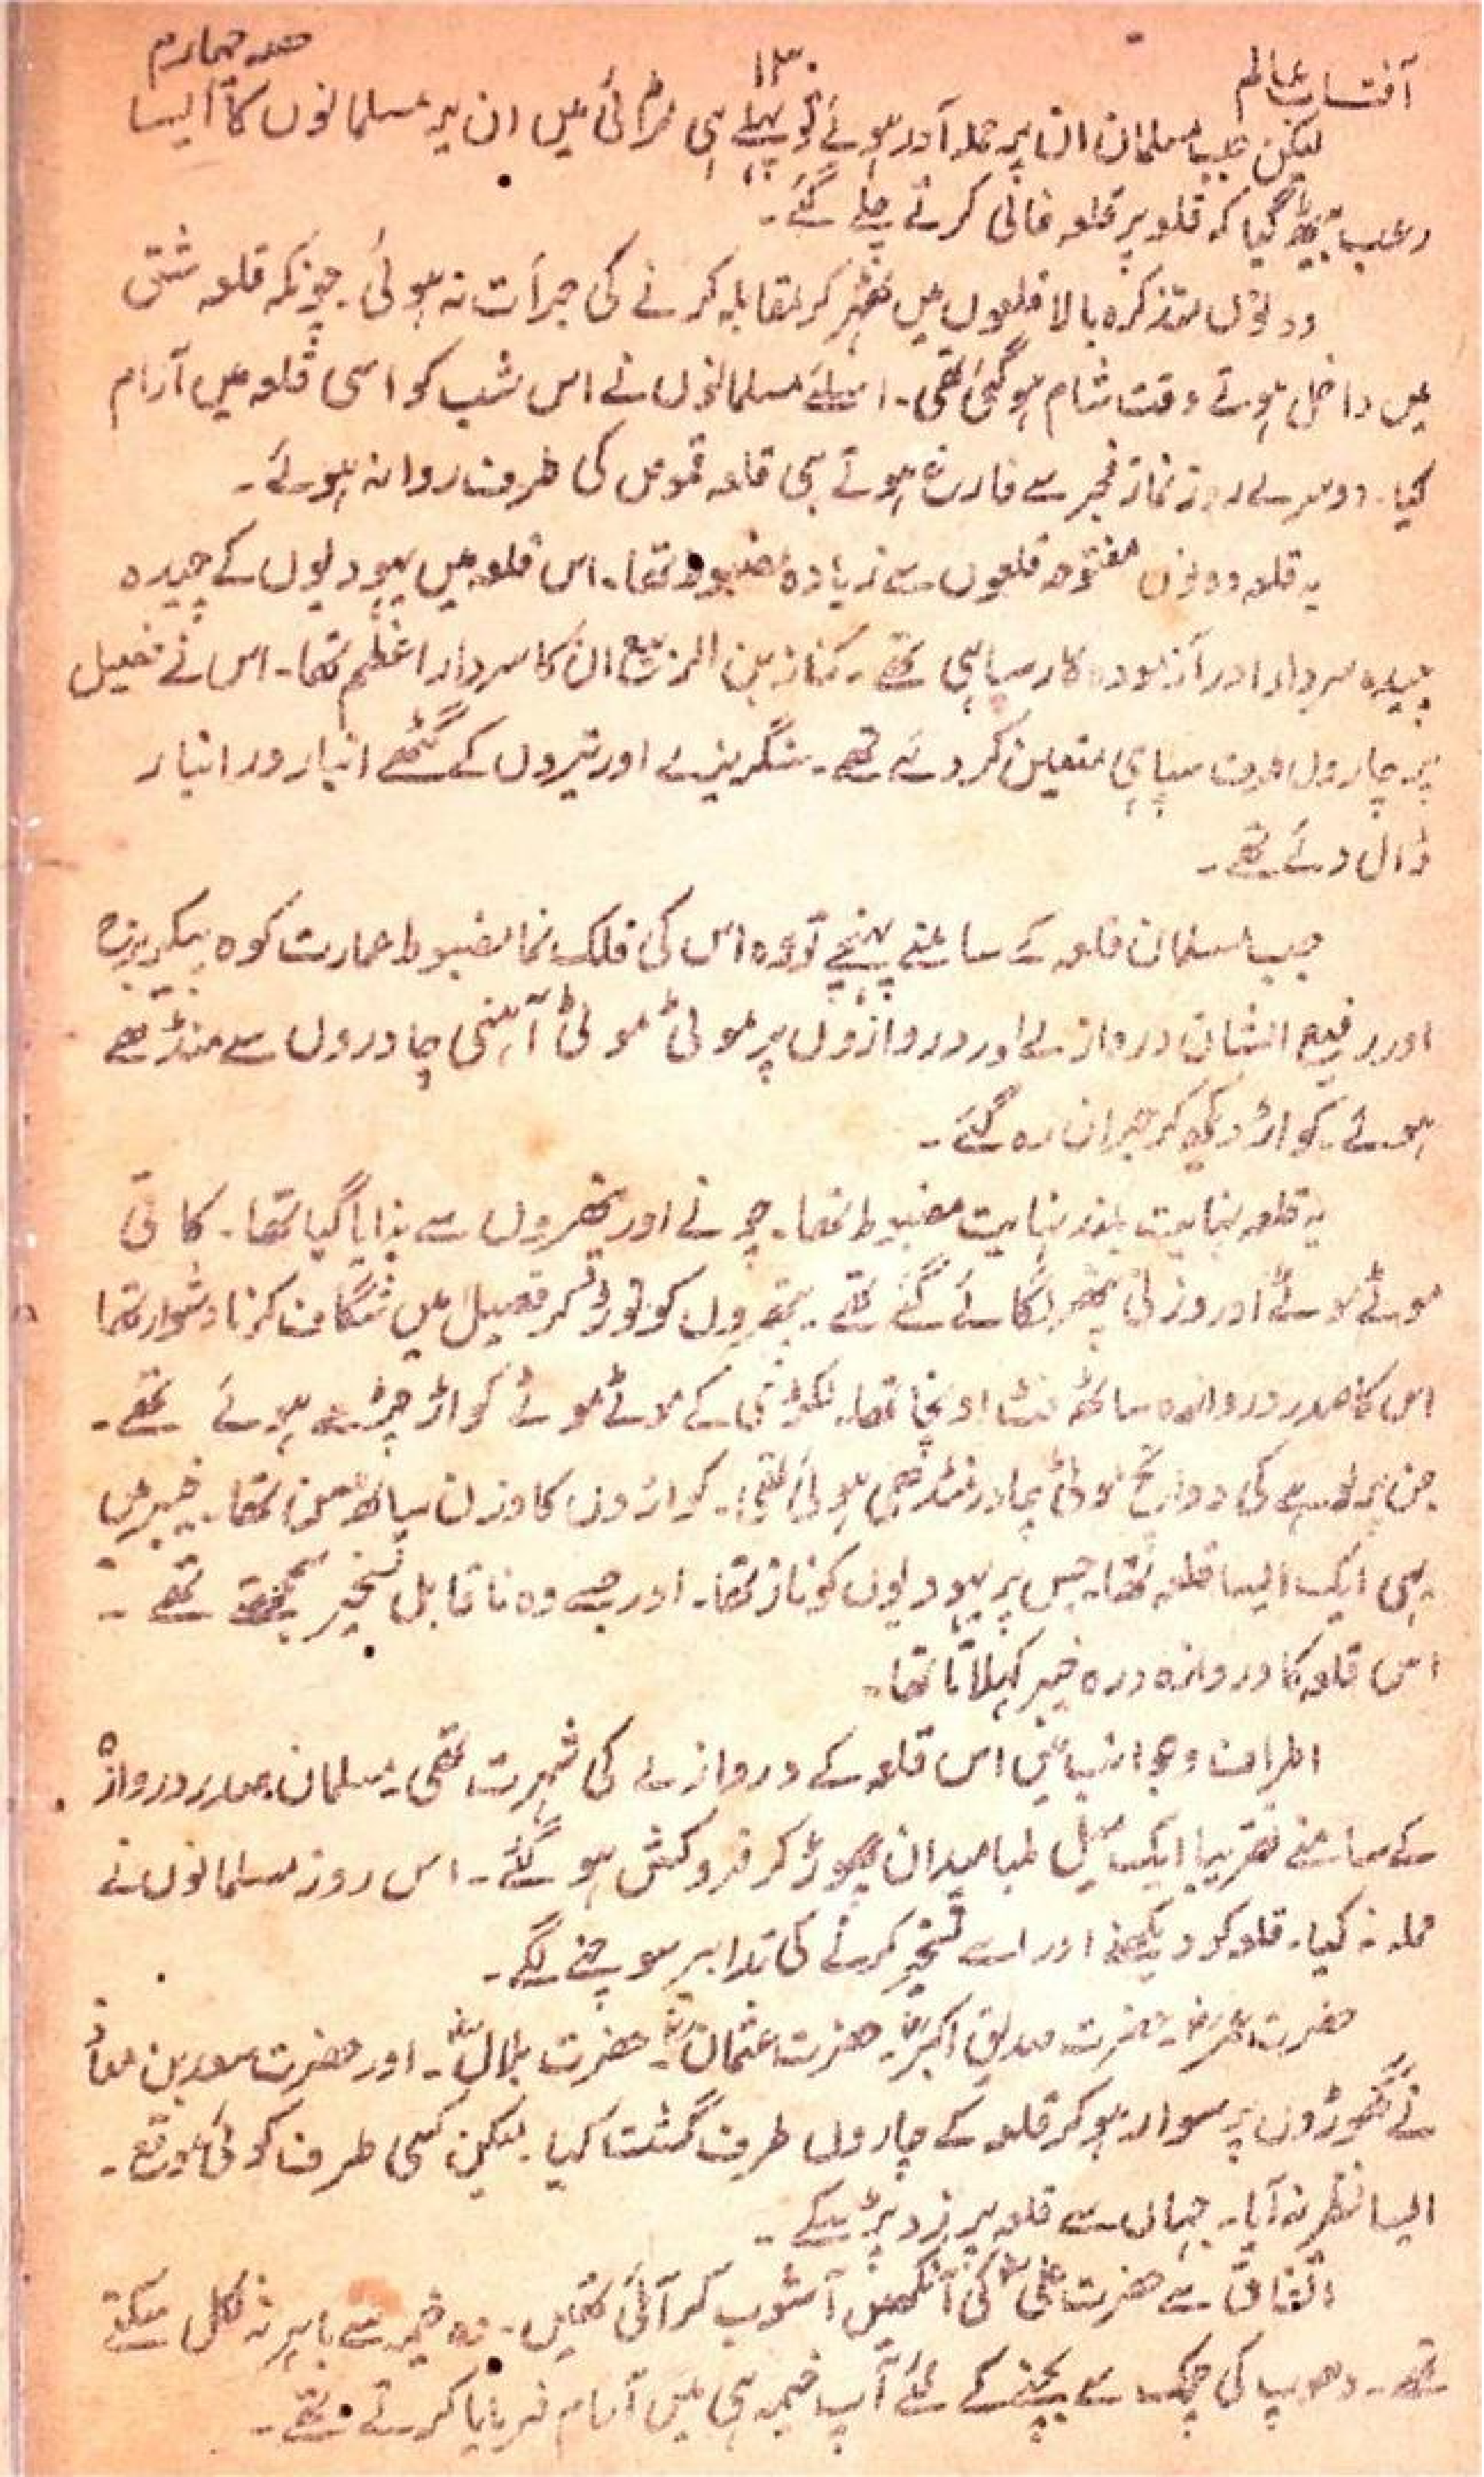 آفتاب عالم ۱۳۰ حصہ چہارم
لیکن جب مسلمان ان پر حملہ آور ہوئے تو پہلے ہی لڑائی میں ان پر مسلمانوں کا ایسا
رعب بیٹھ گیا کہ قلعہ پر قلعہ خالی کرتے چلے گئے۔
دونوں متذکرہ بالا قلعوں میں ٹھہر کر مقابلہ کرنے کی جرأت نہ ہوئی۔ چونکہ قلعہ شقی
میں داخل ہوتے وقت شام ہو گئی تھی۔ اسلئے مسلمانوں نے اس شب کو اسی قلعہ میں آرام
کیا۔ دوسرے روز نماز فجر سے فارغ ہوتے ہی قلعہ قموص کی طرف روانہ ہوئے۔
یہ قلعہ دونوں مفتوحہ قلعوں سے زیادہ مضبوط تھا۔ اس قلعہ میں یہودیوں کے چیدہ
چیدہ سردار اور آزمودہ کار سپاہی تھے۔ کنانہ بن الربیع ان کا سردار اعظم تھا۔ اس نے فصیل
پر چاروں طرف سپاہی متعین کر دئے تھے۔ سنگریزے اور تیروں کے گٹھے انبار در انبار
ڈال دئے تھے۔
جب مسلمان قلعہ کے سامنے پہنچے تو وہ اس کی فلک نما مضبوط عمارت کوہ پیکر برج
اور رفیع الشان دروازے اور دروازوں پر موٹی موٹی آہنی چادروں سے منڈھے
ہوئے کواڑ دیکھ کر حیران رہ گئے۔
یہ قلعہ نہایت بلند نہایت مضبوط تھا۔ چونے اور پتھروں سے بنایا گیا تھا۔ کافی
موٹے موٹے اور وزنی پتھر لگائے گئے تھے۔ پتھروں کو توڑ کر فصیل میں شگاف کرنا دشوار تھا
اس کا صدر دروازہ ساٹھ فٹ اونچا تھا۔ لکڑی کے موٹے موٹے کواڑ چڑھے ہوئے تھے۔
جن پر لوہے کی دو انچ موٹی چادر منڈھی ہوئی تھی۔ کواڑوں کا وزن ساٹھ من تھا۔ خیبر میں
یہی ایک ایسا قلعہ تھا۔ جس پر یہودیوں کو ناز تھا۔ اور جسے وہ ناقابل تسخیر سمجھتے تھے۔
اس قلعہ کا دروازہ درہ خیبر کہلاتا تھا۔
اطراف و جوانب میں اس قلعہ کے دروازے کی شہرت تھی۔ مسلمان صدر دروازہ
کے سامنے تقریباً ایک میل لمبا میدان چھوڑ کر فروکش ہو گئے۔ اس روز مسلمانوں نے
حملہ نہ کیا۔ قلعہ کو دیکھنے اور اسے تسخیر کرنے کی تدابیر سوچنے لگے۔
حضرت عمرؓ۔ حضرت صدیق اکبرؓ۔ حضرت عثمانؓ۔ حضرت بلالؓ۔ اور حضرت سعد بن معاذ
نے گھوڑوں پر سوار ہو کر قلعہ کے چاروں طرف گشت کیا۔ لیکن کسی طرف کوئی موقع۔
ایسا نظر نہ آیا۔ جہاں سے قلعہ پر زد پڑ سکے۔
اتفاق سے حضرت علیؓ کی آنکھیں آشوب کر آئی تھیں۔ وہ خیمہ سے باہر نہ نکل سکتے
تھے۔ دھوپ کی چمک سے بچنے کے لئے آپ خیمہ ہی میں آرام فرمایا کرتے تھے۔